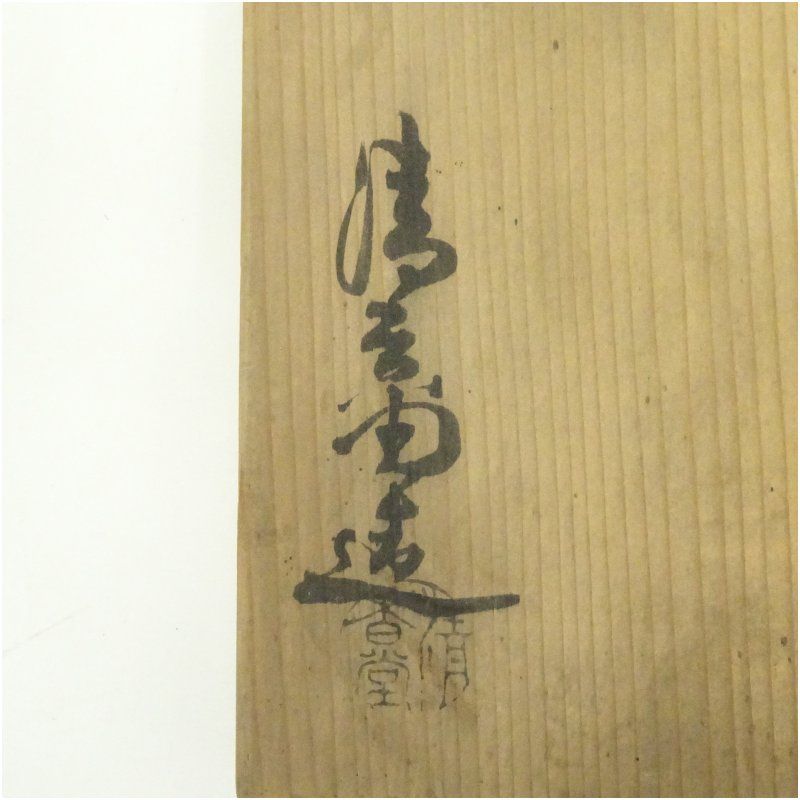 清香堂造
清
香堂